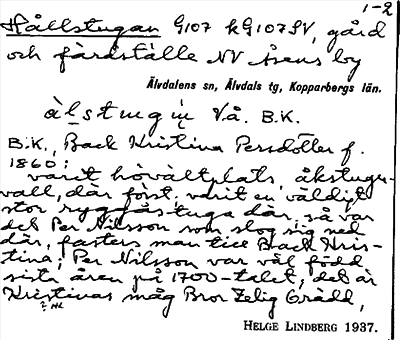 1-2
Hållstugan G107 kG107SV, gård
och färdställe NV Åsens by
Älvdalens sn, Älvdals tg, Kopparbergs län.
Vå. B.K.
B.K., Back Kristina Persdotter f.
1860:
varit hövältplats, åkstugu-
vall, där först, varit en väldigt
stor ryggåstuga där, så var
det Per Nilsson som slog sig ned
där, fasters man till Back Kris-
tina; Per Nilsson var väl född
sista åren på 1700-talet, det är
Kristinas måg Bror Zelig Grädd,
HELGE LINDBERG 1937.